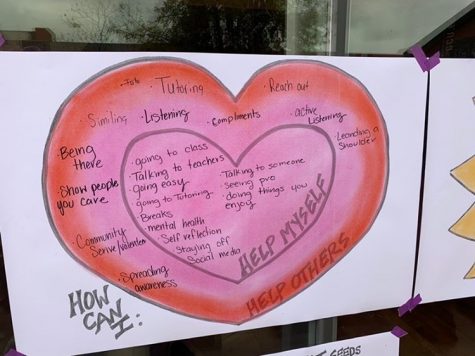 Tutoring
Reach out
Similing
Listening
compliments
active
Listening
Leanding a
Shoulder
Being
there
Show people
you care
Community
Serive/volenteer
Spreading
awareness
going to class
Talking to teachers
going easy
going to Tutoring
Breaks
mental health
Self reflection
Staying off
Social media
Talking to someone
seeing pro
doing things you
enjoy
HELP MYSELF
HELP OTHERS
HOW
CAN
I:
SEEDS